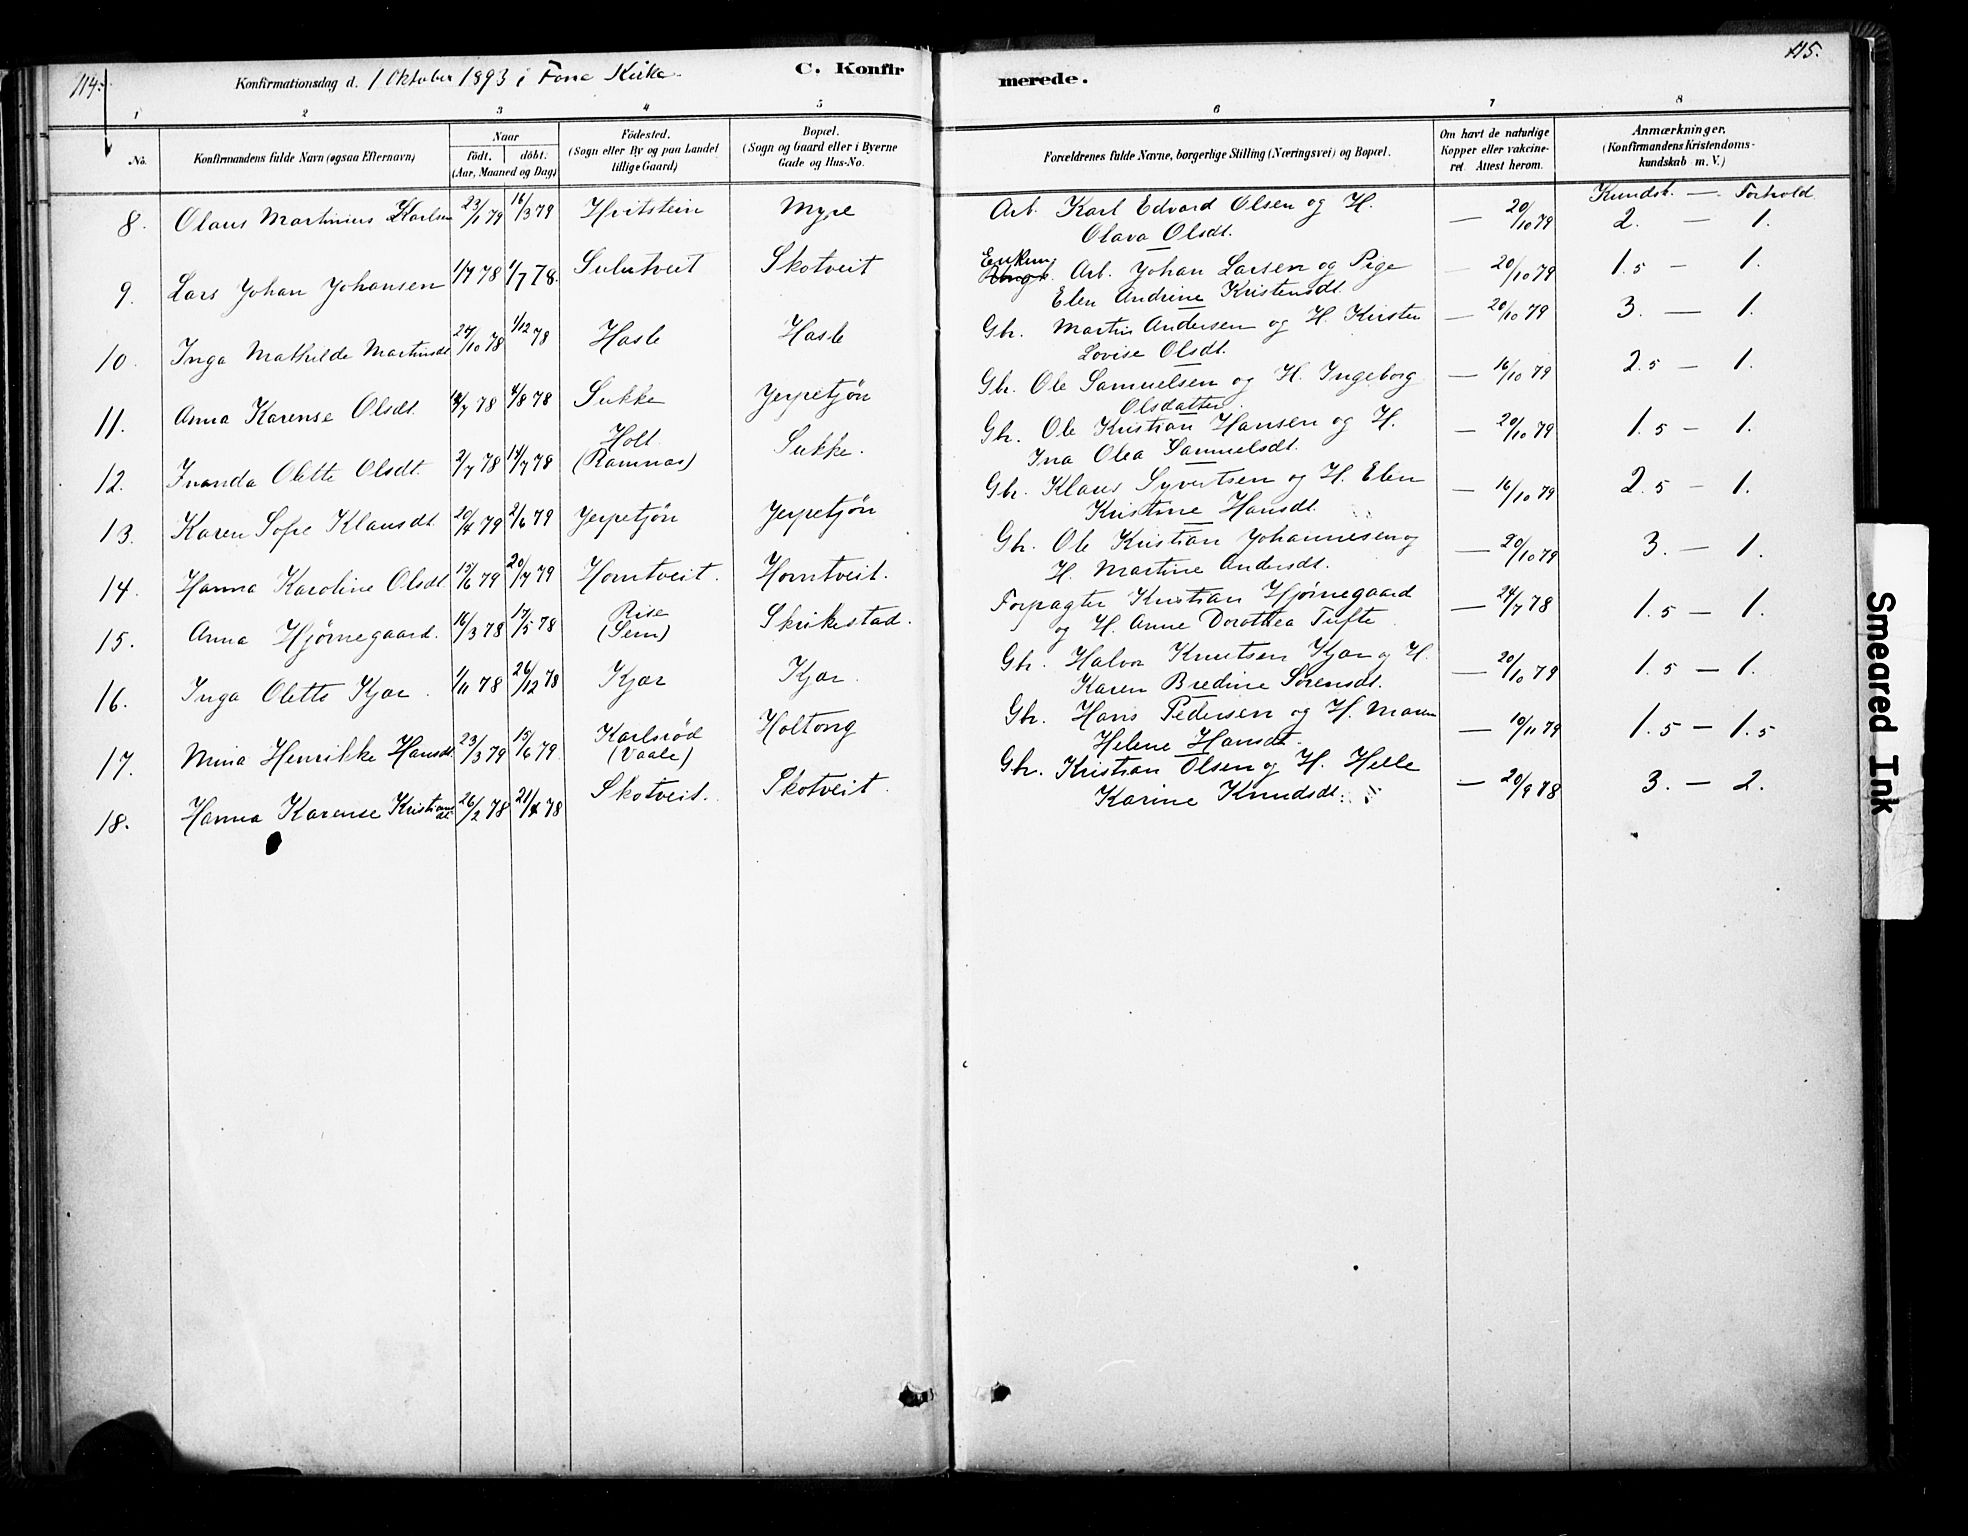 114.
Konfirmationsdag d. 1 Oktober 1893 i Fone Kirke.
C. Konfir
merede.
115.
1 2 3 4 5 6 7 8
No.
Konfirmandens fulde Navn (ogsaa Efternavn)
Naar
födt. döbt.
(Aar, Maaned og Dag)
Födested.
(Sogn eller By og paa Landet
tillige Gaard)
Bopæl.
(Sogn og Gaard eller i Byerne
Gade og Hus-No.
Forældrenes fulde Navne, borgerlige Stilling (Næringsvei) og Bopæl.
Om havt de naturlige
Kopper eller vakcine-
ret. Attest herom.
Anmærkninger.
(Konfirmandens Kristendoms-
kundskab m. V.)
Kundsk. — Forhold
8. Olaus Martinius Karlsen 23/1 79 16/3 79 Hvitstein Myre Arb. Karl Edvard Olsen og H. — 20/10 79 2. — 1.
Olava Olsdt.
9. Lars Johan Johansen 1/7 78 1/7 78. Sulutveit Skotveit Enkem. Arb. Johan Larsen og Pige — 20/10 79 1.5 — 1.
Elen Andrine Kristensdt.
10. Inga Mathilde Martinsdt 27/10 78 1/12 78 Hasle Hasle Gbr. Martin Andersen og H. Kirsten — 20/10 79 3. — 1.
Lovise Olsdt.
11. Anna Karense Olsdt. 14/7 78 4/8 78 Sukke Jerpetjøn Gbr. Ole Samuelsen og H. Ingeborg — 16/10 79 2.5 — 1.
Olsdatter.
12. Inanda Olette Olsdt. 2/7 78 14/7 78 Holt (Ramnæs) Sukke. Gbr. Ole Kristian Hansen og H. — 20/10 79 1.5 — 1.
Ina Olea Samuelsdt.
13. Karen Sofie Klausdt. 20/4 79 2/6 79 Jerpetjøn Jerpetjøn Gbr. Klaus Syvertsen og H. Elen — 16/10 79 2.5 — 1.
Kristine Hansdt.
14. Hanna Karoline Olsdt. 15/6 79 20/7 79 Horntveit. Horntveit. Gbr. Ole Kristian Johannesen og — 20/10 79 3. — 1.
H. Martine Andersdt.
15. Anna Hjørnegaard. 16/3 78 17/5 78 Rise (Sem) Skrikestad. Forpagter Kristian Hjørnegaard — 24/7 78 1.5 — 1.
og H. Anne Dorothea Tufte.
16. Inga Olette Kjær. 1/11 78 26/12 78 Kjær Kjær. Gbr. Halvor Knutsen Kjær og H. — 20/10 79 1.5 — 1.
Karen Bredine Sørensdt.
17. Mina Henrikke Hansdt. 23/3 79 15/6 79 Karlsrød (Vaale) Holtong Gbr. Hans Pedersen og H. Maren — 10/11 79 1.5 — 1.5
Helene Hansdt.
18. Hanna Karense Kristiansdt. 26/2 78 21/4 78 Skotveit. Skotveit. Gbr. Kristian Olsen og H. Helle — 20/9 78 3. — 2.
Karine Knudsdt.
Smeared Ink